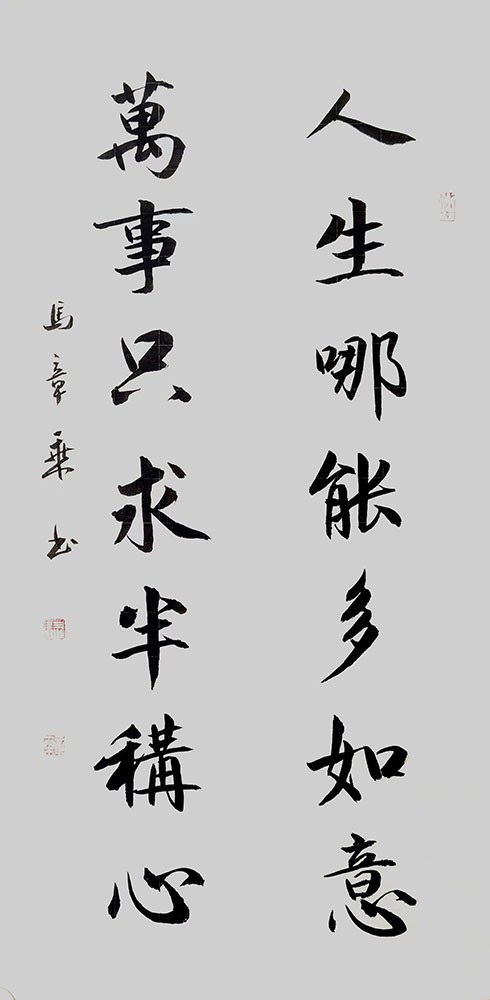 人生哪能多如意
萬事只求半稱心
馬章乘书